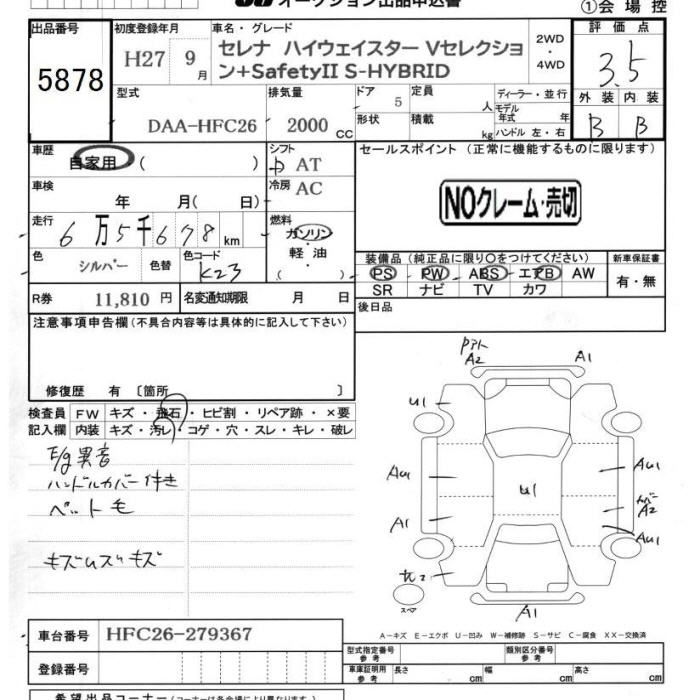 オークション出品申込書
①会場控
出品番号
5878
初度登録年月
H27 9月
車名・グレード
セレナ ハイウェイスター Vセレクショ
ン+SafetyII S-HYBRID
2WD
・
4WD
評価点
3.5
外装 内装
B B
型式
DAA-HFC26
排気量
2000 cc
ドア 5
形状
定員 人
積載 kg
ディーラー・並行
モデル年式 年
ハンドル 左・右
車歴
自家用 ( )
シフト
AT
車検
年 月( 日)
冷房 AC
走行
6万5千678km
燃料
ガソリン
軽・油
( )
色
シルバー
色替
色コード
K23
R券 11,810 円
名変通知期限 月 日
セールスポイント (正常に機能するものに限ります)
NOクレーム・売切
装備品 (純正品に限り○をつけてください)
新車保証書
PS PW ABS エアB AW
SR ナビ TV カワ
有・無
後日品
注意事項申告欄(不具合内容等は具体的に記入して下さい)
修復歴 有 〔箇所 〕
検査員
記入欄
FW キズ・飛石・ヒビ割・リペア跡・×要
内装 キズ・汚レ・コゲ・穴・スレ・キレ・破レ
E/g異音
ハンドルカバー付き
ペット毛
キズUズキズ
A2 A1
U1
AU1 AU1
U1
A2
A1
AU1
A1
スペア
A−キズ E−エクボ U−凹み W−補修跡 S−サビ C−腐食 XX−交換済
車台番号 HFC26-279367
登録番号
型式指定番号
参考
類別区分番号
参考
車庫証明用
参考
長さ cm 幅 cm 高さ cm
希望出品コーナー(コーナーは各会場により異なります)